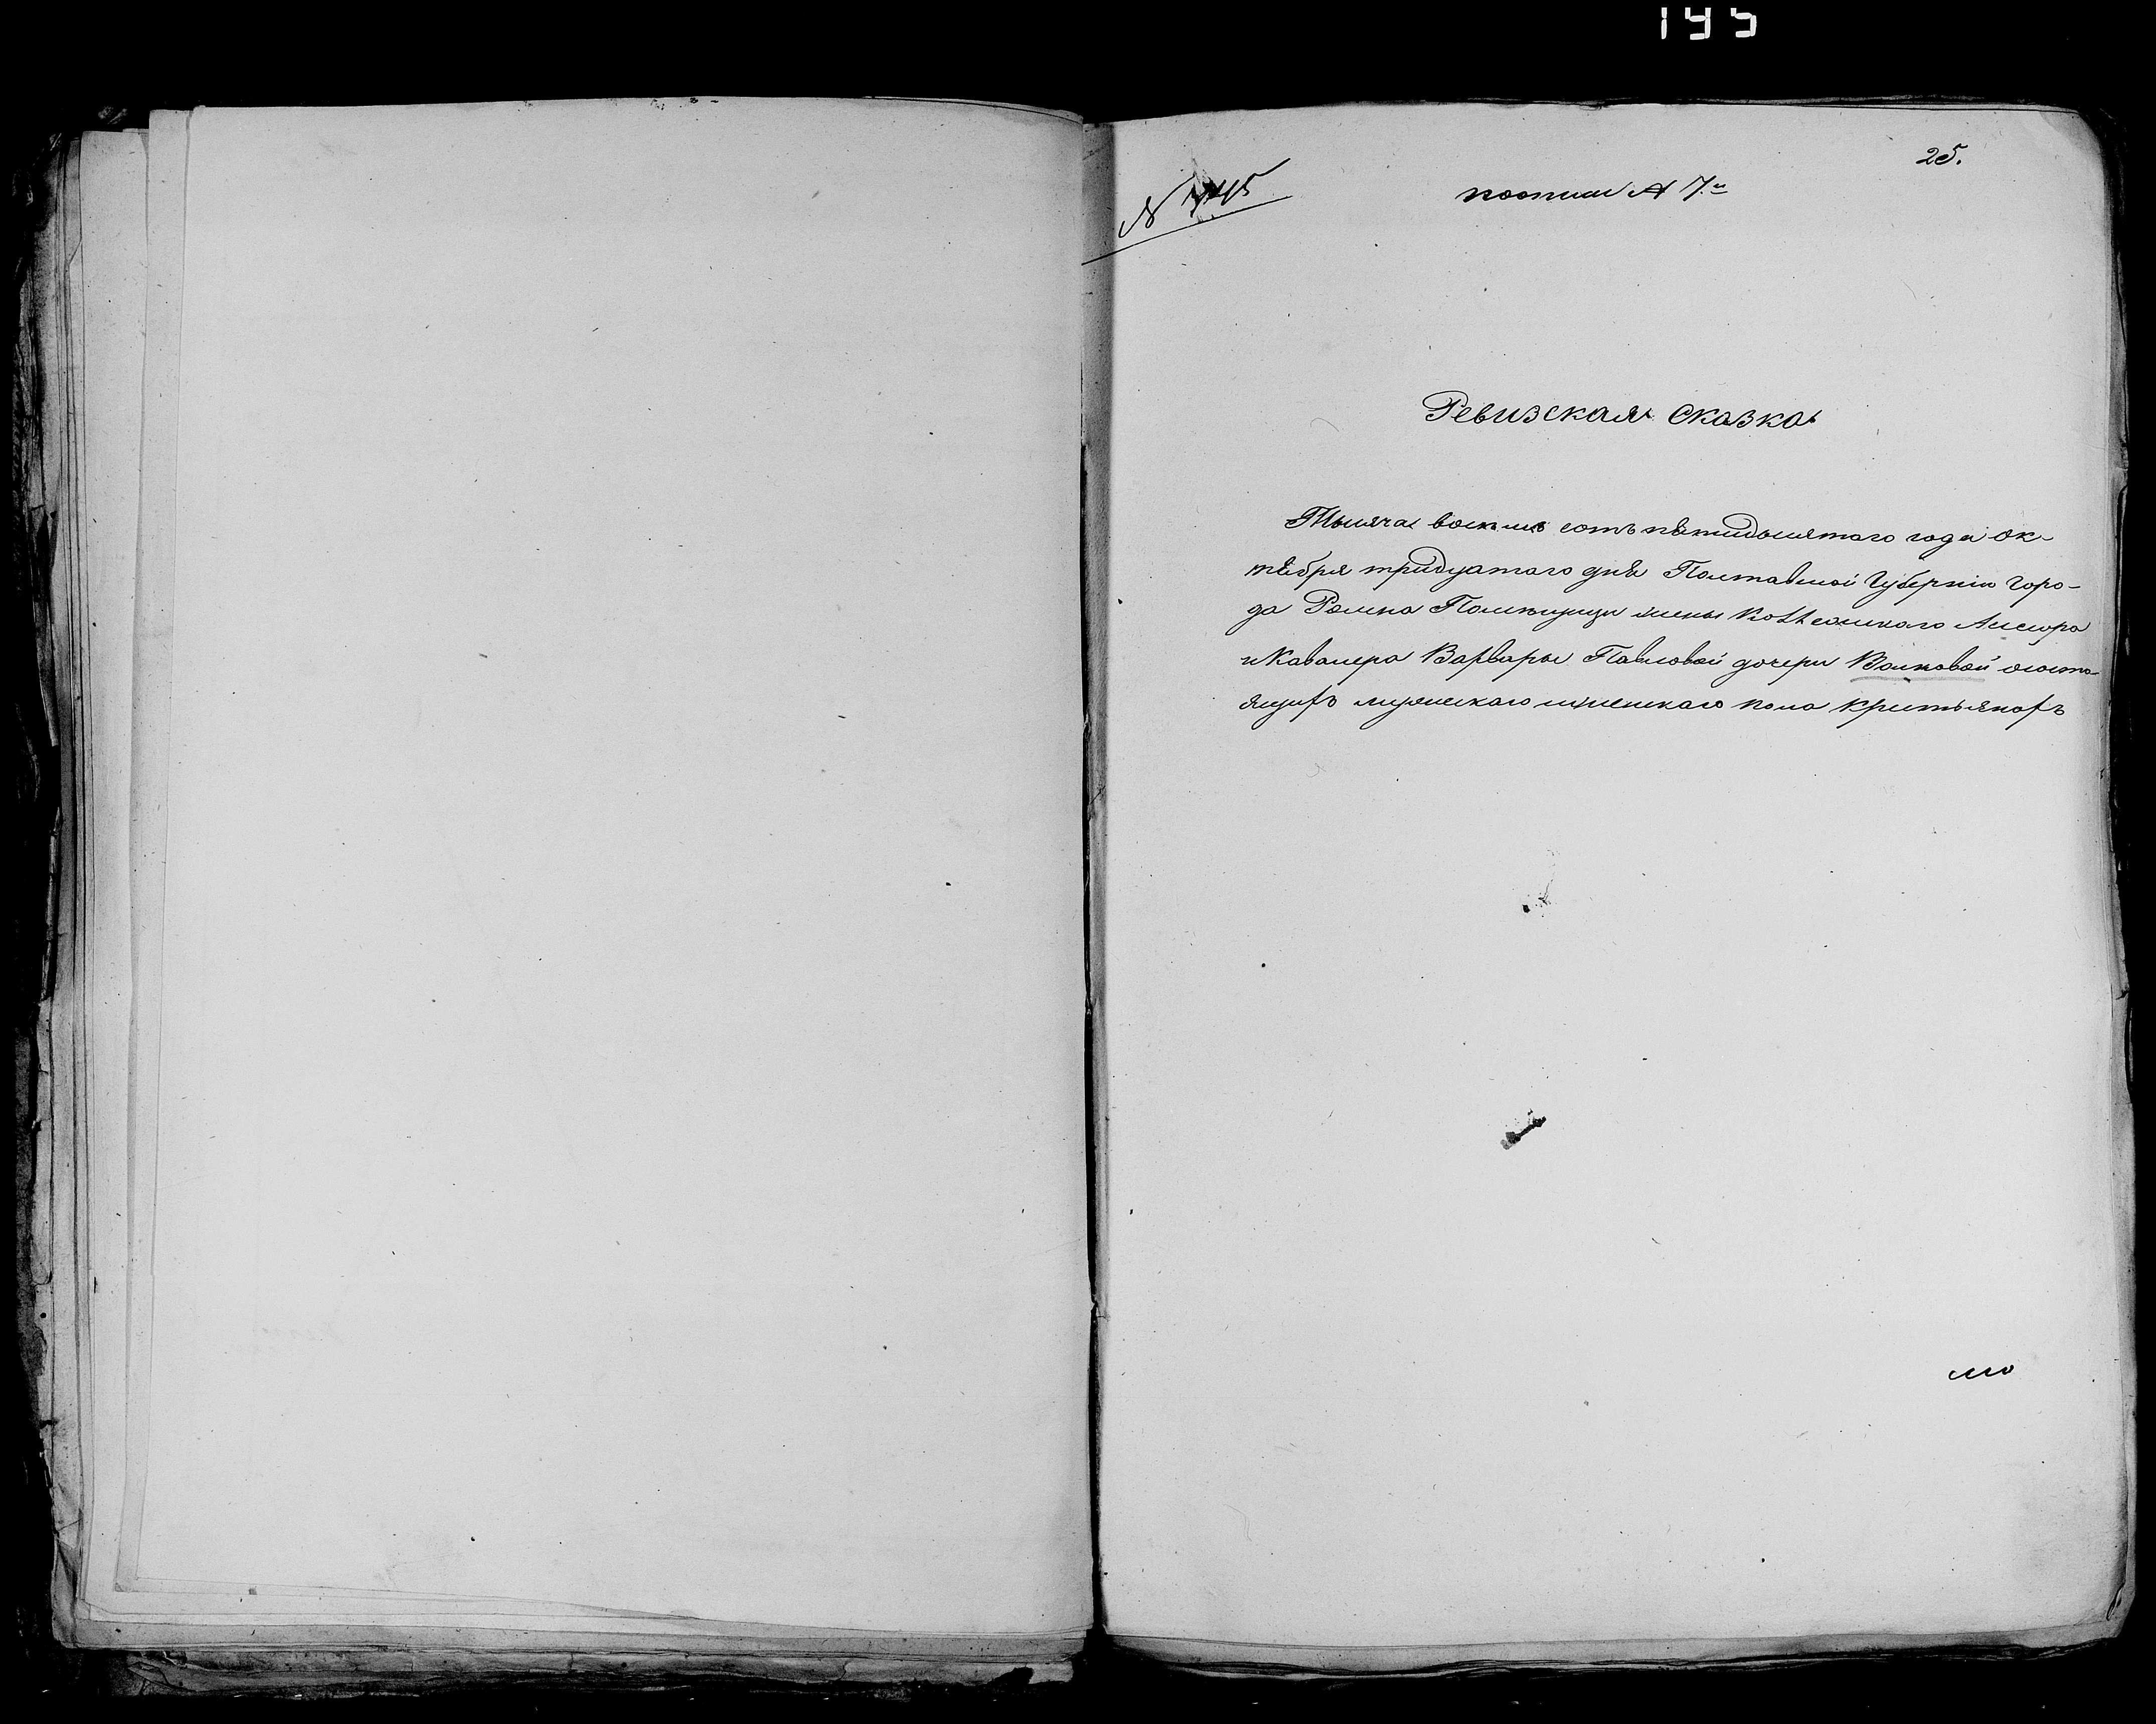 195
25.
№ 745
по описи № 7.й
Ревизская сказка
Тысяча восемь сотъ пятидесятаго года ок-
тября тридцатаго дня Полтавской Губерніи Горо-
да Ромна Помещицы жены Коллежскаго Ассесора
и Кавалера Варвары Павловой дочери Волковой о состо-
ящихъ мужескаго и женскаго пола крестьянахъ